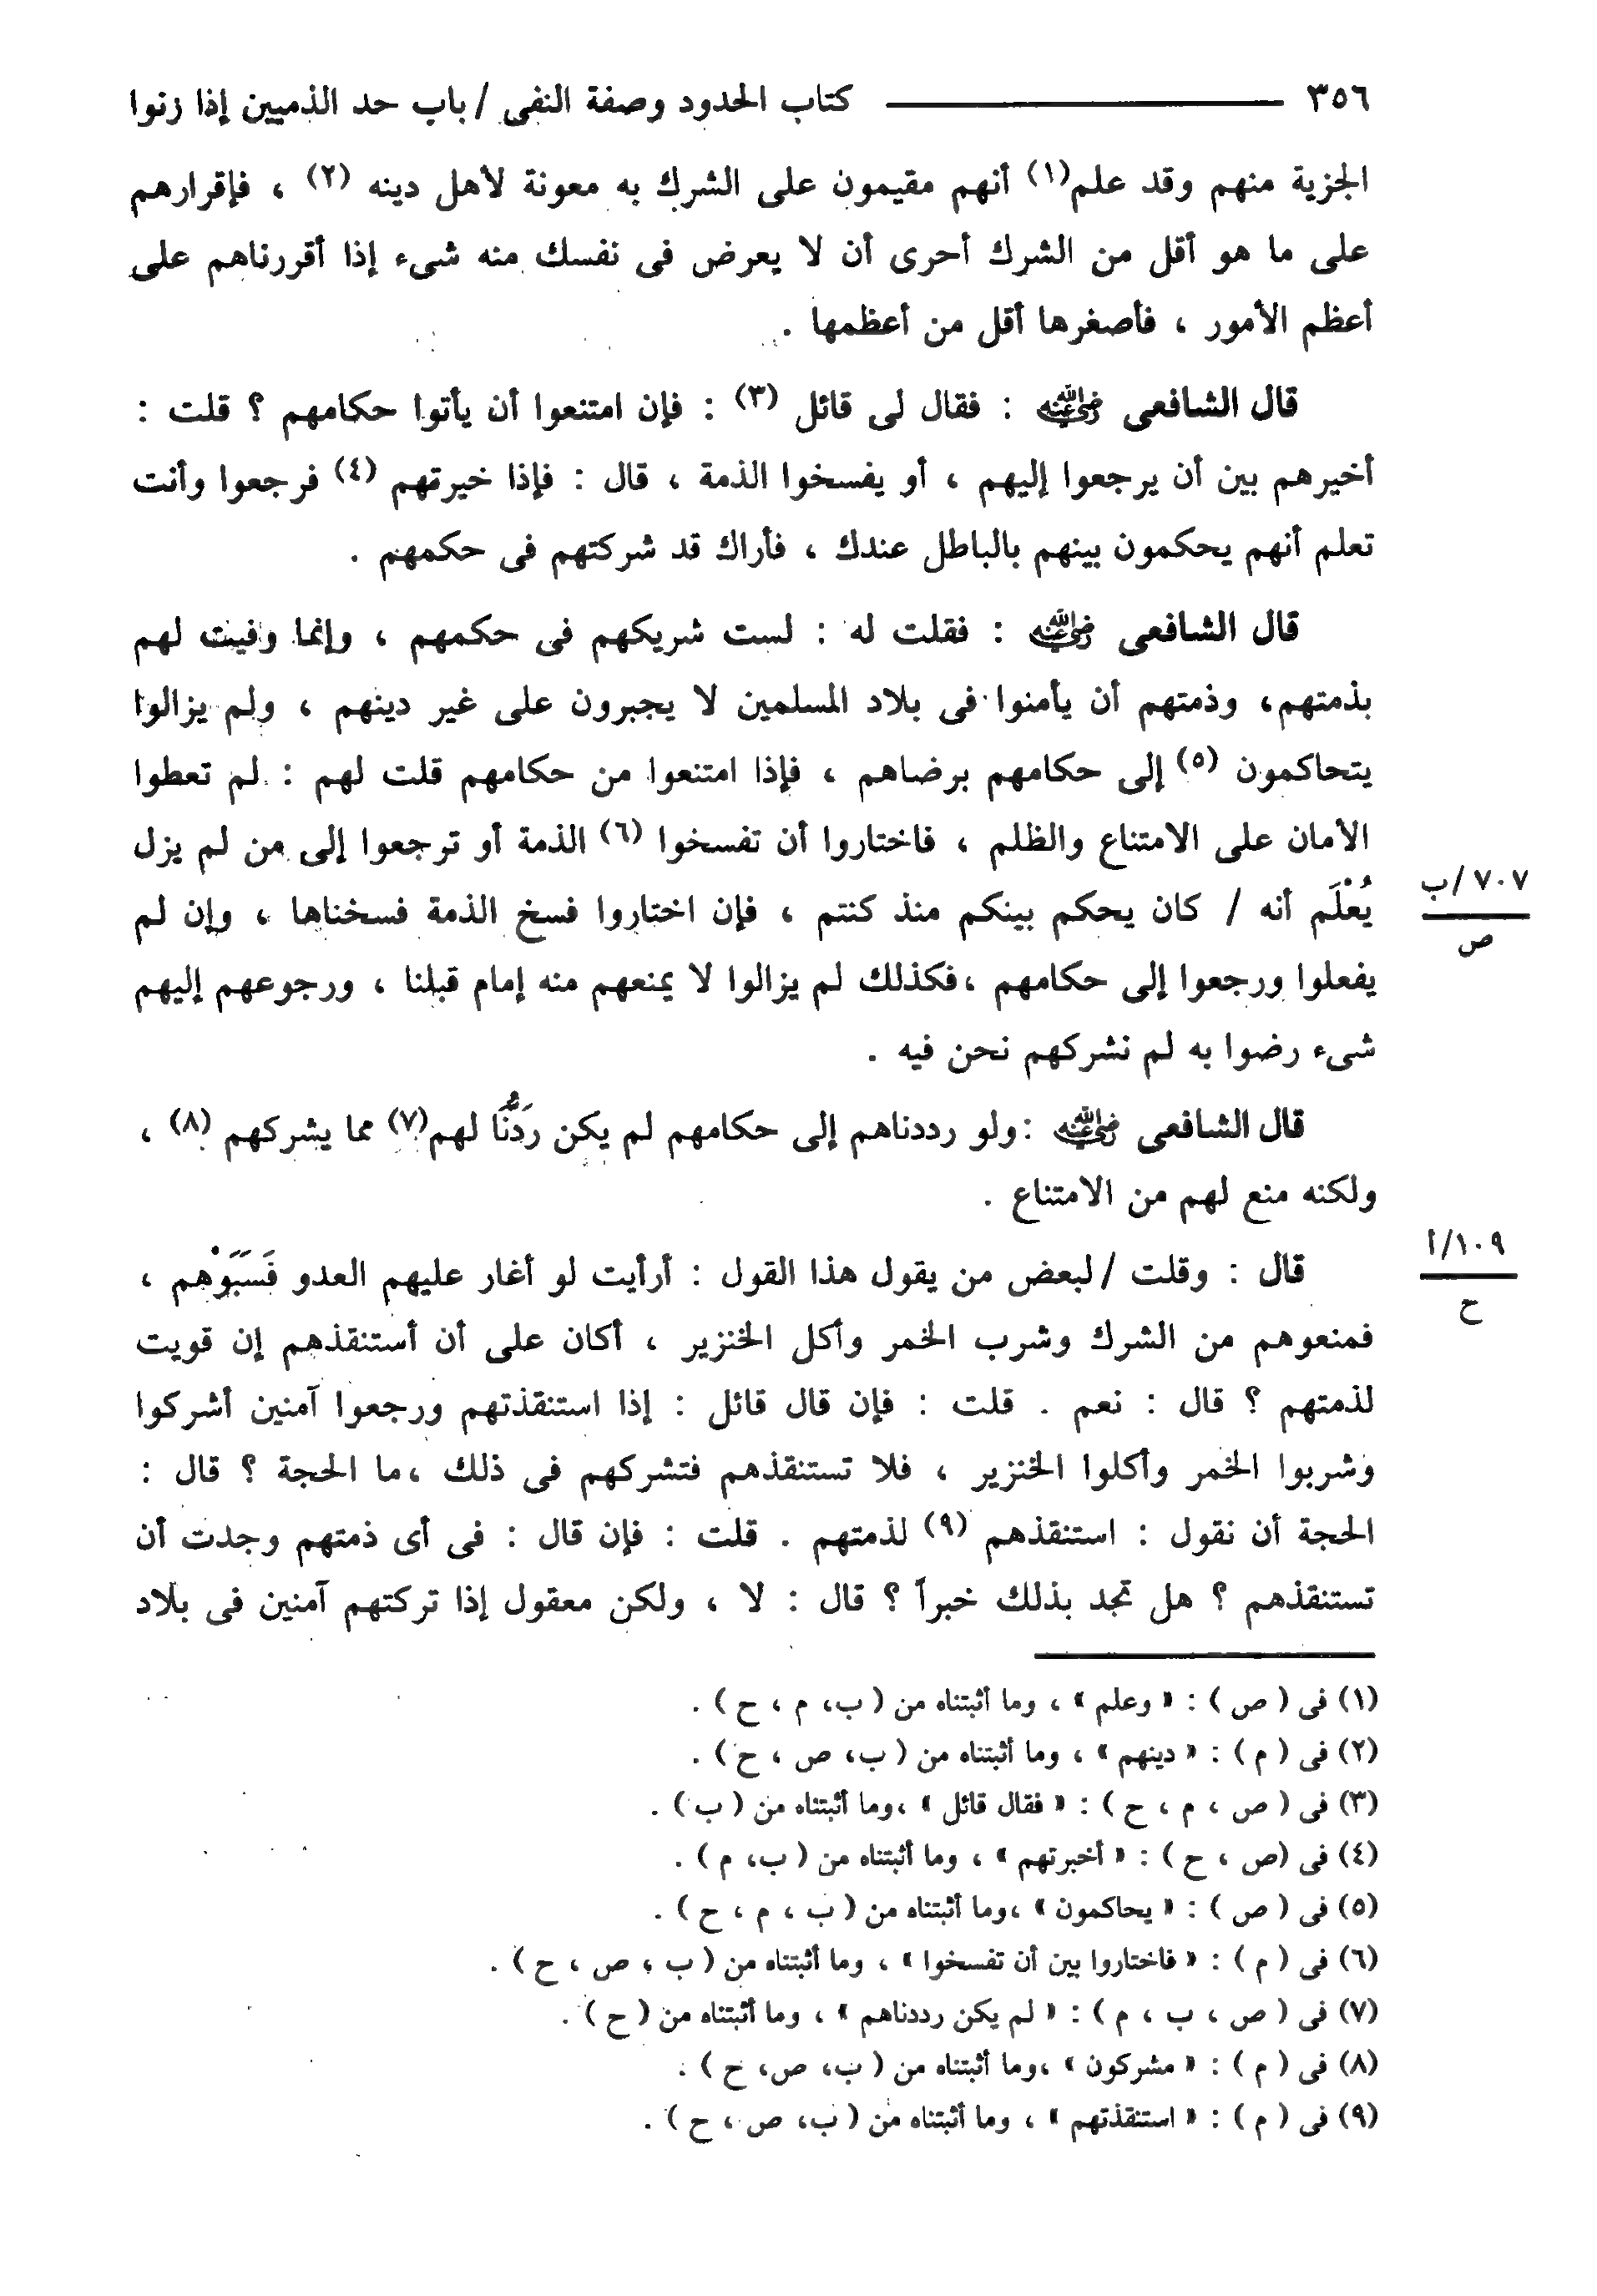 ٣٥٦ كتاب الحدود وصفة النفى / باب حد الذميين إذا زنوا
الجزية منهم وقد علم(١) أنهم مقيمون على الشرك به معونة لأهل دينه (٢) ، فإقرارهم
على ما هو أقل من الشرك أحرى أن لا يعرض فى نفسك منه شىء إذا أقررناهم على
أعظم الأمور ، فأصغرها أقل من أعظمها .
قال الشافعى رضي الله عنه : فقال لى قائل (٣) : فإن امتنعوا أن يأتوا حكامهم ؟ قلت :
أخيرهم بين أن يرجعوا إليهم ، أو يفسخوا الذمة ، قال : فإذا خيرتهم (٤) فرجعوا وأنت
تعلم أنهم يحكمون بينهم بالباطل عندك ، فأراك قد شركتهم فى حكمهم .
قال الشافعى رضي الله عنه : فقلت له : لست شريكهم فى حكمهم ، وإنما وفيت لهم
بذمتهم، وذمتهم أن يأمنوا فى بلاد المسلمين لا يجبرون على غير دينهم ، ولم يزالوا
يتحاكمون (٥) إلى حكامهم برضاهم ، فإذا امتنعوا من حكامهم قلت لهم : لم تعطوا
الأمان على الامتناع والظلم ، فاختاروا أن تفسخوا (٦) الذمة أو ترجعوا إلى من لم يزل
يُعْلَم أنه / كان يحكم بينكم منذ كنتم ، فإن اختاروا فسخ الذمة فسخناها ، وإن لم
٧٠٧/ب
ص
يفعلوا ورجعوا إلى حكامهم ،فكذلك لم يزالوا لا يمنعهم منه إمام قبلنا ، ورجوعهم إليهم
شىء رضوا به لم نشركهم نحن فيه .
قال الشافعى رضي الله عنه :ولو رددناهم إلى حكامهم لم يكن رَدُّنَا لهم(٧) مما يشركهم (٨) ،
ولكنه منع لهم من الامتناع .
قال : وقلت / لبعض من يقول هذا القول : أرأيت لو أغار عليهم العدو فَسَبَوْهم ،
١٠٩/أ
ح
فمنعوهم من الشرك وشرب الخمر وأكل الخنزير ، أكان على أن أستنقذهم إن قويت
لذمتهم ؟ قال : نعم . قلت : فإن قال قائل : إذا استنقذتهم ورجعوا آمنين أشركوا
وشربوا الخمر وأكلوا الخنزير ، فلا تستنقذهم فتشركهم فى ذلك ،ما الحجة ؟ قال :
الحجة أن نقول : استنقذهم (٩) لذمتهم . قلت : فإن قال : فى أى ذمتهم وجدت أن
تستنقذهم ؟ هل تجد بذلك خبراً ؟ قال : لا ، ولكن معقول إذا تركتهم آمنين فى بلاد
(١) فى ( ص ) : « وعلم » ، وما أثبتناه من ( ب، م ، ح ) .
(٢) فى ( م ) : « دينهم » ، وما أثبتناه من ( ب، ص ، ح ) .
(٣) فى ( ص ، م ، ح ) : « فقال قائل » ،وما أثبتناه من ( ب ) .
(٤) فى (ص ، ح ) : « أخبرتهم » ، وما أثبتناه من ( ب، م ) .
(٥) فى ( ص ) : « يحاكمون » ،وما أثبتناه من ( ب ، م ، ح ) .
(٦) فى ( م ) : « فاختاروا بين أن تفسخوا » ، وما أثبتناه من ( ب ، ص ، ح ) .
(٧) فى ( ص ، ب ، م ) : « لم يكن رددناهم » ، وما أثبتناه من ( ح ) .
(٨) فى ( م ) : « مشركون » ،وما أثبتناه من ( ب، ص، ح ) .
(٩) فى ( م ) : « استنقذتهم » ، وما أثبتناه من ( ب، ص ، ح ) .